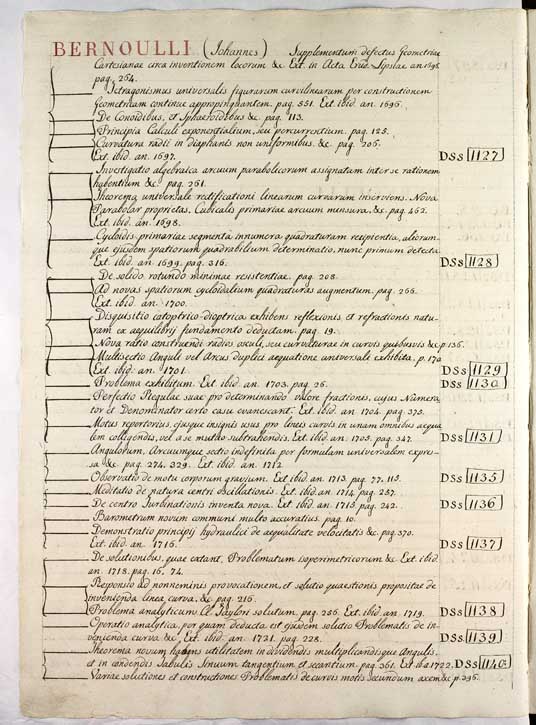 BERNOULLI (Johannes) Supplementum defectus Geometriae
Cartesianae circa inventionem locorum &c Ext. in Acta Erud. Lipsiae an 1696
pag. 264.
Tetragonismus universalis figurarum curvilinearum per constructionem
Geometricam continue appropinquantem. pag. 551. Ext. ibid an. 1696.
De Conoidibus, et Sphaeroidibus &c pag. 113.
Principia Calculi exponentialium, seu percurrentium. pag. 125.
Curvatura radii in diaphanis non uniformibus. &c. pag. 206.
Ext. ibid. an. 1697. DSs 1127
Investigatio algebraica arcuum parabolicorum assignatam inter se rationem
habentium &c. pag. 261.
Theorema universale rectificationi linearum curvarum inserviens. Nova
Parabolae proprietas. Cubicalis primariae arcuum mensura, &c. pag. 462.
Ext. ibid. an. 1698.
Cycloidis primariae segmenta innumera quadraturam recipientia, aliorum-
que ejusdem spatiorum quadrabilium determinatio, nunc primum detecta
Ext. ibid an. 1699. pag. 316. DSs 1128
De solido rotundo minimae resistentiae. pag. 208.
Ad novas spatiorum cycloidalium quadraturas augmentum. pag. 266.
Ext. ibid an. 1700.
Disquisitio catoptrico-dioptrica exhibens reflexionis, et refractionis natu-
ram ex aequilibrij fundamento deductam. pag. 19.
Nova ratio construendi radios osculi, seu curvilturae in curvis quibusvis &c p. 136.
Multisectio Anguli vel Arcus duplici aequatione universale exhibita, p. 170
Ext. ibid. an. 1701. DSs 1129
Problema exhibitum. Ext. ibid an. 1703. pag. 26. DSs 1130
Perfectio Regulae suae pro determinando valore fractionis, cujus Numera-
tor et Denominator certo casu evanescant. Ext. ibid an. 1704. pag. 375.
Motus reportorius, ejusque insignis usus pro lineis curvis in unam omnibus aequa-
lem colligendis, vel a se mutuo subtrahendis. Ext. ibid an. 1705. pag. 347. DSs 1131
Angulorum, Arcuumque sectio indefinita per formulam universalem expres-
sa &c. pag. 274. 329. Ext. ibid an. 1712
Observatio de motu corporum gravium. Ext. ibid an. 1713. pag. 77. 115. DSs 1135
Meditatio de natura centri oscillationis. Ext. ibid. an. 1714. pag. 257.
De centro Turbinationis inventa nova. Ext. ibid an. 1715. pag. 242. DSs 1136
Barometrum novum communi multo accuratius. pag. 10.
Demonstratio principij hydraulici de aequalitate velocitatis &c. pag. 370.
Ext. ibid an. 1716. DSs 1137
De solutionibus, quae extant, Problematum isoperimetricorum &c. Ext. ibid.
an. 1718. pag. 16. 74.
Responsio ad nonneminis provocationem, et solutio quaestionis propositae de
invenienda linea curva, &c. pag. 216.
Problema analyticum A. Taylori solutum. pag. 256. Ext. ibid an. 1719. DSs 1138
Operatio analytica, per quam deducta est ejusdem solutio Problematis de in-
venienda curva &c. Ext. ibid an. 1721. pag. 228. DSs 1139
Theorema novum habens utilitatem in dividendis multiplicandisque Angulis,
et in condendis Tabulis Sinuum tangentium et secantium. pag. 361. Ext. ibid 1722. DSs 1140
Variae solutiones et constructiones Problematis de curvis motis secundum axem &c p. 396.